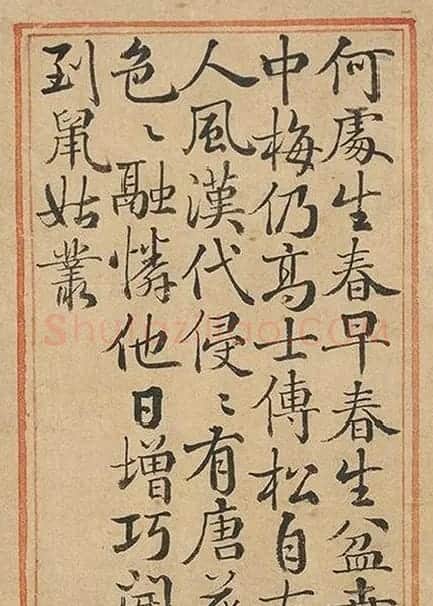 何處生春早春生盆
中梅仍高士傳松自
人風漢代侵〻有唐
色〻融憐他日增巧
到鼠姑叢